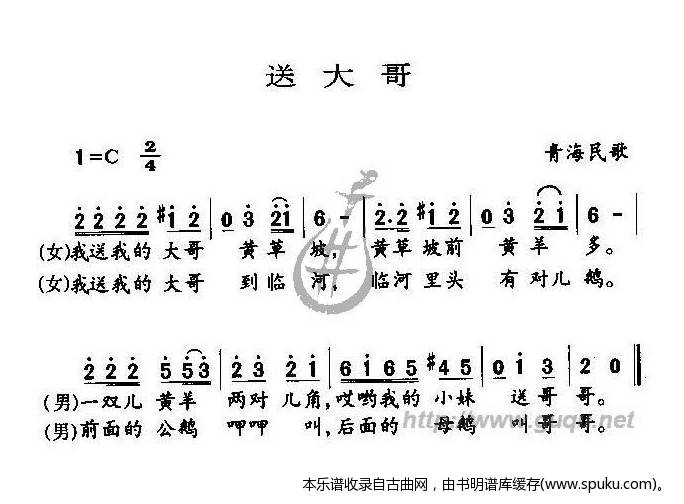 送大哥
1=C 2/4 青海民歌
2 2 2 2 #1 2 | 0 3 2 1 | 6 - | 2. 2 #1 2 | 0 3 2 1 | 6 - |
(女)我送我的 大哥 黄草 坡, 黄草坡前 黄羊 多。
(女)我送我的 大哥 到临 河, 临河里头 有对儿 鹅。
2 2 2 5 5 3 | 2 3 2 1 | 6 1 6 5 #4 5 | 0 1 3 | 2 0 ‖
(男)一双儿 黄羊 两对 儿角, 哎哟我的 小妹 送哥 哥。
(男)前面的 公鹅 呷呷 叫, 后面的 母鹅 叫哥 哥。
http://www.guqu.net
本乐谱收录自古曲网，由书明谱库缓存(www.spuku.com)。